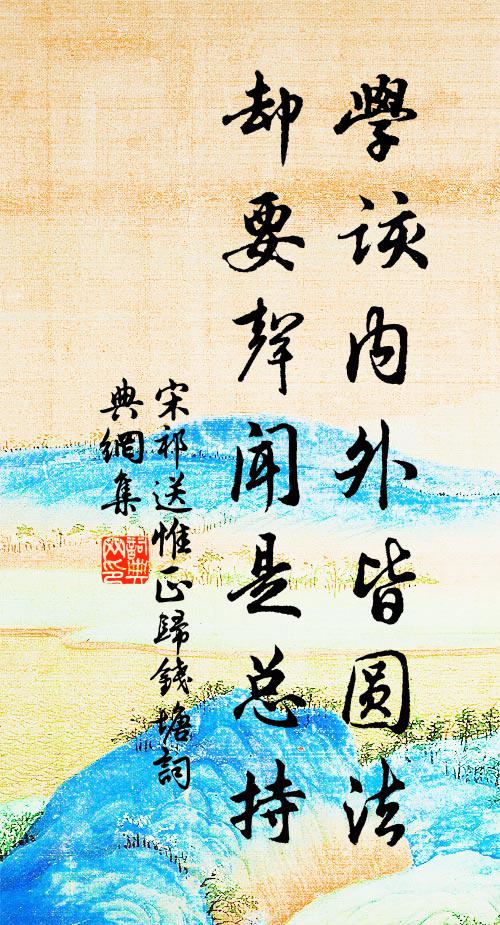 學該內外皆圓法
却要聲聞是总持
宋祁送惟正歸錢塘詞
典網集
詞典
网印